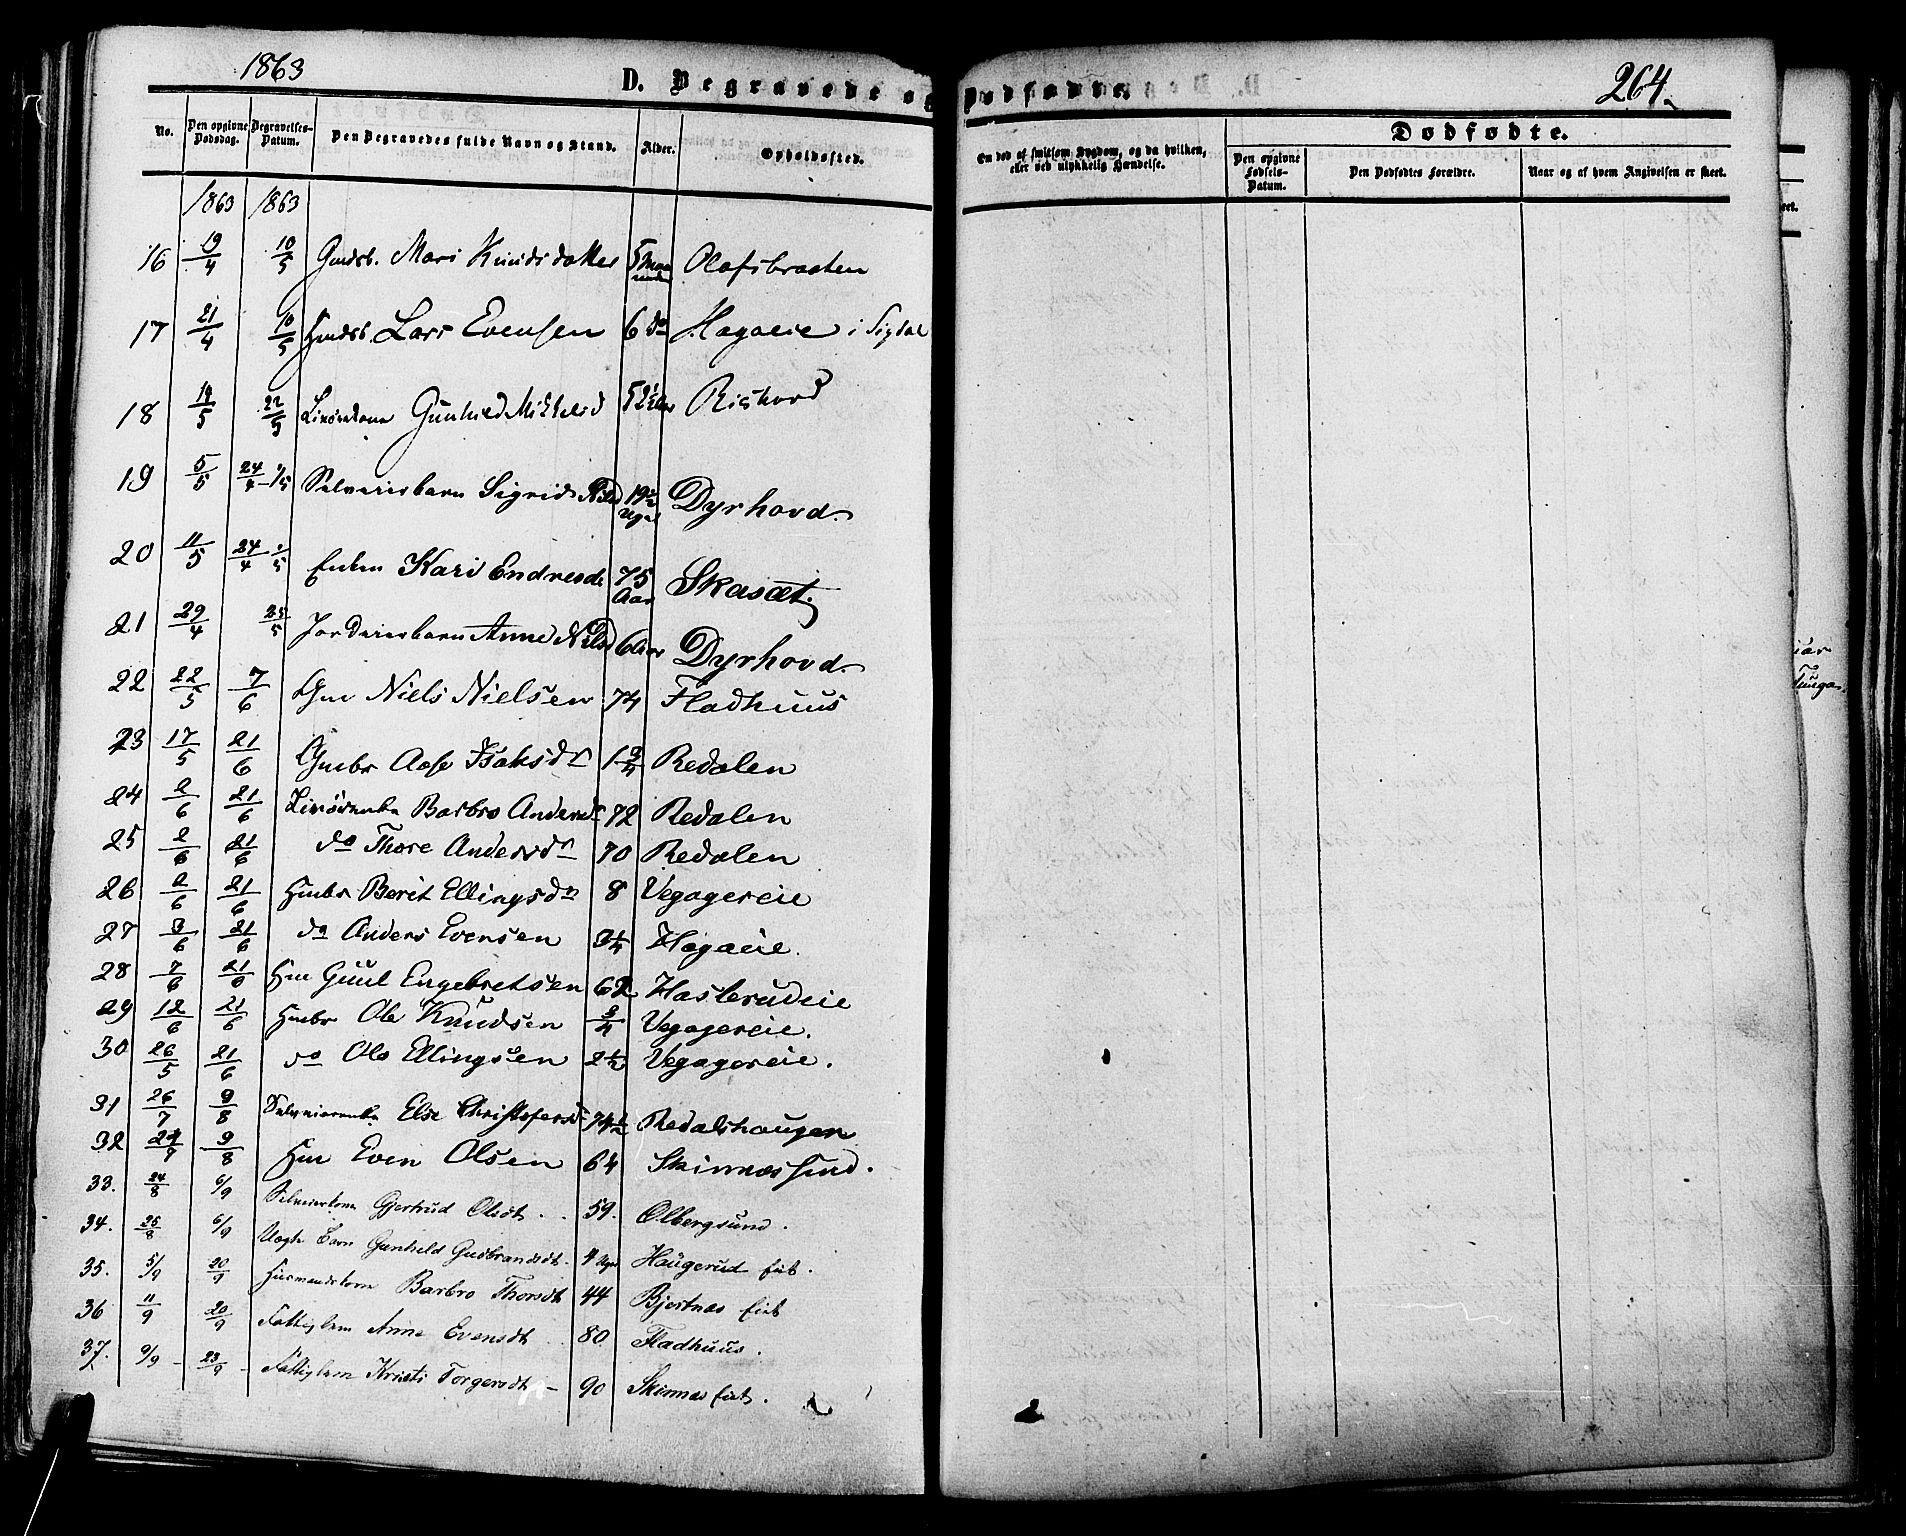 1863
D. Begravede og Dødfødte.
264.
No. Den opgivne Dødsdag. Begravelses-Datum. Den Begravedes fulde Navn og Stand. Alder. Opholdssted. En død af smitsom Sygdom, og da hvilken, eller ved ulykkelig Hændelse. Dødfødte. Den opgivne Fødsels-Datum. Den Dødfødtes Forældre. Naar og af hvem Angivelsen er skeet.
1863 1863
16 19/4 10/5 Mari Knudsdatter 5 Olafsbraaten
17 21/4 10/5 Lars Evensen 6 do Hagaeie i Sigdal
18 19/5 22/5 Gunhild 52½ Aar Rishovd
19 5/5 24/4 Selveierbarn Sigrid 19 Uger Dyrhovd.
20 11/5 24/4 Enken Kari Endresd 75 Aar Skasæt.
21 29/4 25/5 Anne Nilsd 6 Aar Dyrhovd.
22 22/5 7/6 Gm Niels Nielsen 74 Fladhuus
23 17/5 21/6 Aase Isaksdr 1¾ Redalen
24 2/6 21/6 Barbro Andersdr 72 Redalen
25 2/6 21/6 do Thore Andersdr 70 Redalen
26 2/6 21/6 Hmbr Berit Ellingsdr 8 Vegagereie
27 3/6 21/6 do Anders Evensen 3¼ Hagaeie.
28 7/6 21/6 Hm Guul Engebretsen 62 Haslerudeie
29 12/6 21/6 Hmbr Ole Knudsen ¾ Vegagereie.
30 26/5 21/6 do Ole Ellingsen 2½ Vegagereie.
31 26/7 9/8 Else Christofersd 74½ Redalshaugen
32 9/8 Hm Even Olsen 64 Skinnæssund.
33. 24/8 6/9 Selveierkone Gjertrud Olsdt. 59. Olbergsund.
34. 25/8 6/9 Uægte Barn Gunhild Gudbrandsdt. 4 Uger Haugerud eiet.
35. 5/9 20/9 Husmandskone Barbro Thorsdt 44 Bjertnæs eiet
36 11/9 20/9 Fattiglem Anne Evensdt 80 Fladhuus.
37. 9/9 - 23/9 - Fattiglem Kristi Torgersdt - 90 Skinnæs eiet.